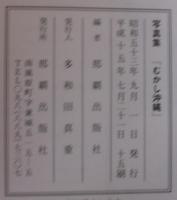 写真集 『むかし沖縄』
昭和五十三年九月一日 発行
平成十五年七月二十一日 十五刷
編者 那覇出版社
発行人 多和田真重
発行所 那覇出版社
南風原町字兼城